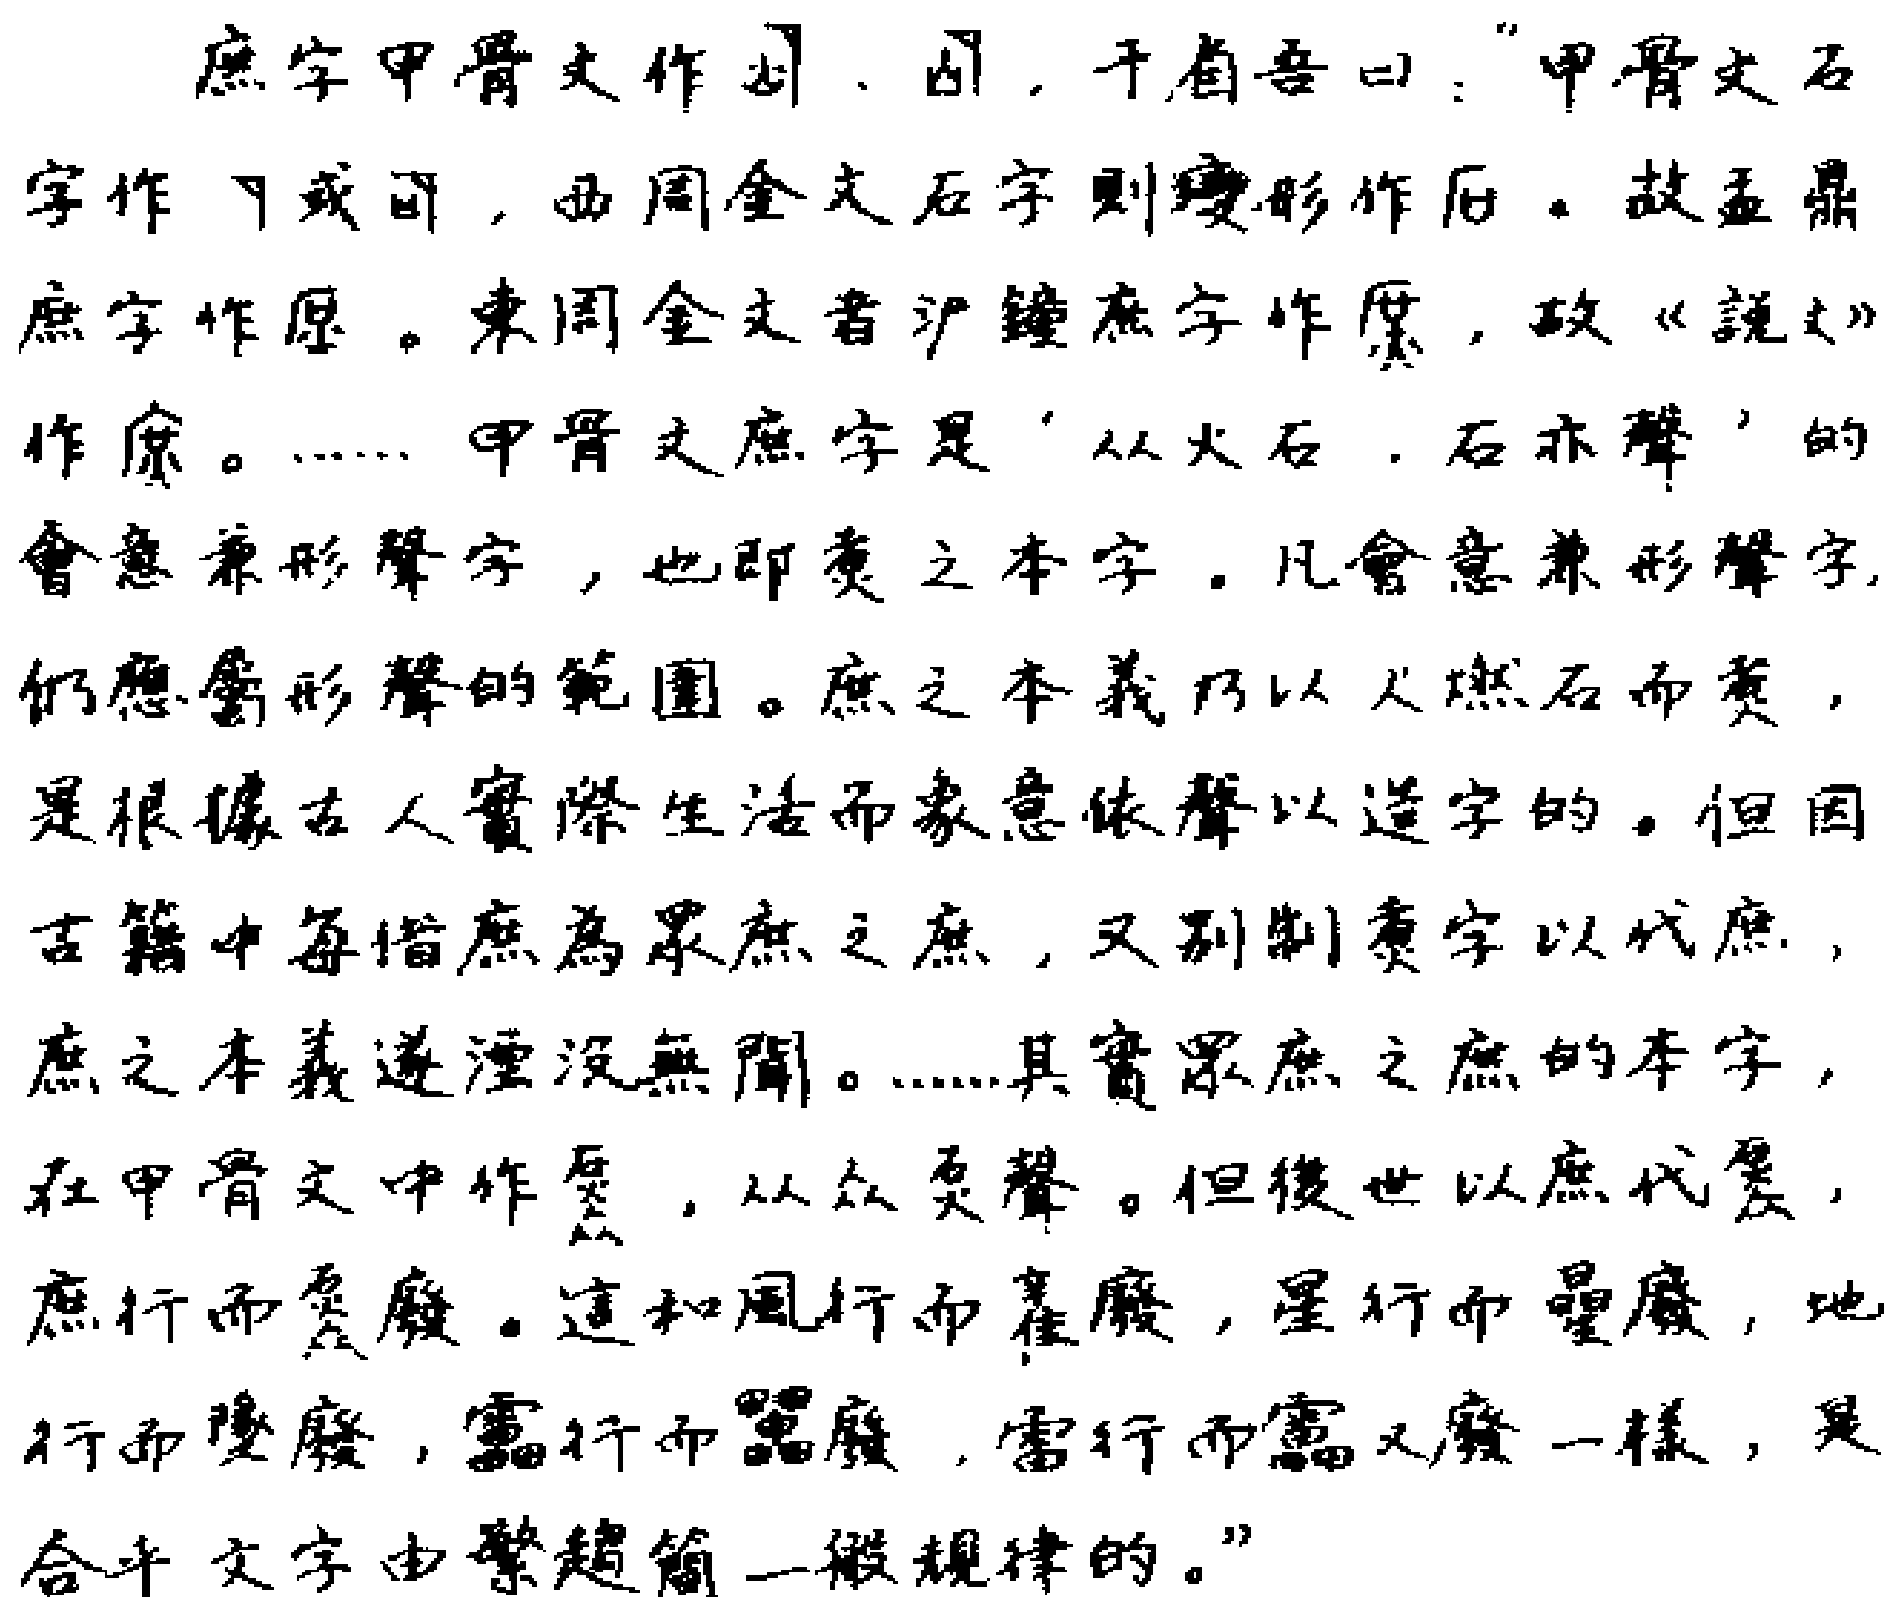 庶字甲骨文作、,于省吾曰:“甲骨文石
字作或,西周金文石字則變形作后。故盂鼎
庶字作。東周金文者沪鐘庶字作,故《説文》
作。……甲骨文庶字是‘从火石,石亦聲’的
會意兼形聲字,也即煑之本字。凡會意兼形聲字,
仍應屬形聲的範圍。庶之本義乃以火燃石而煑,
是根據古人實際生活而象意依聲以造字的。但因
古籍中每借庶為眾庶之庶,又别制煑字以代庶,
庶之本義遂湮没無聞。……其實眾庶之庶的本字,
在甲骨文中作,从聲。但後世以庶代,
庶行而廢。這和風行而廢,星行而曐廢,地
行而墬廢,靁行而廢,雷行而靁又廢一樣,是
合乎文字由繁趨簡一般規律的。”